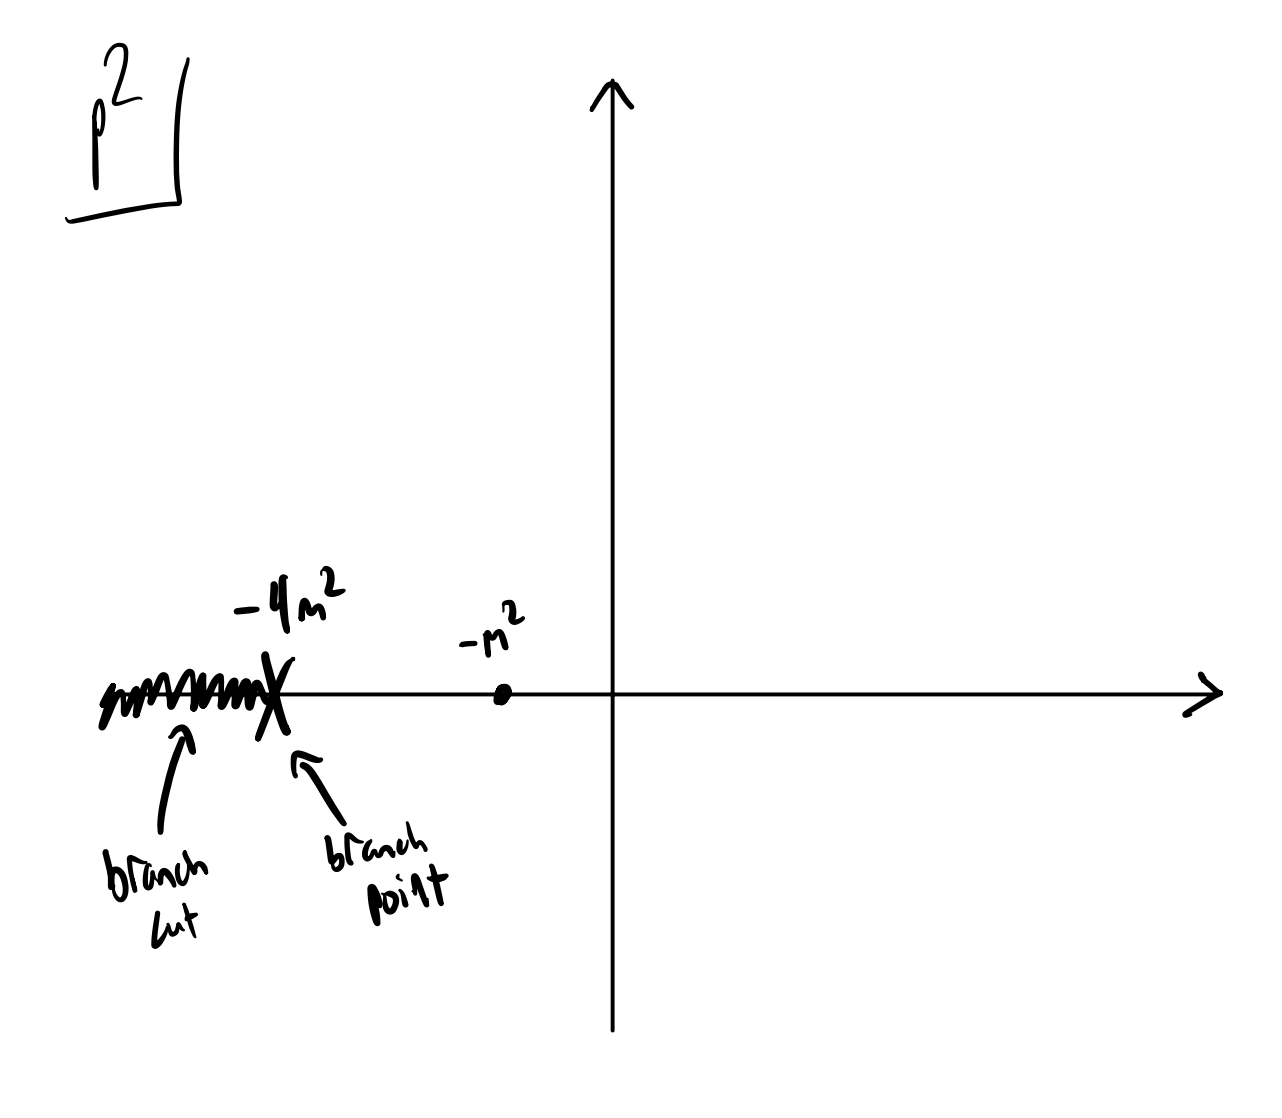 p²
-4m²
-m²
branch
cut
branch
point